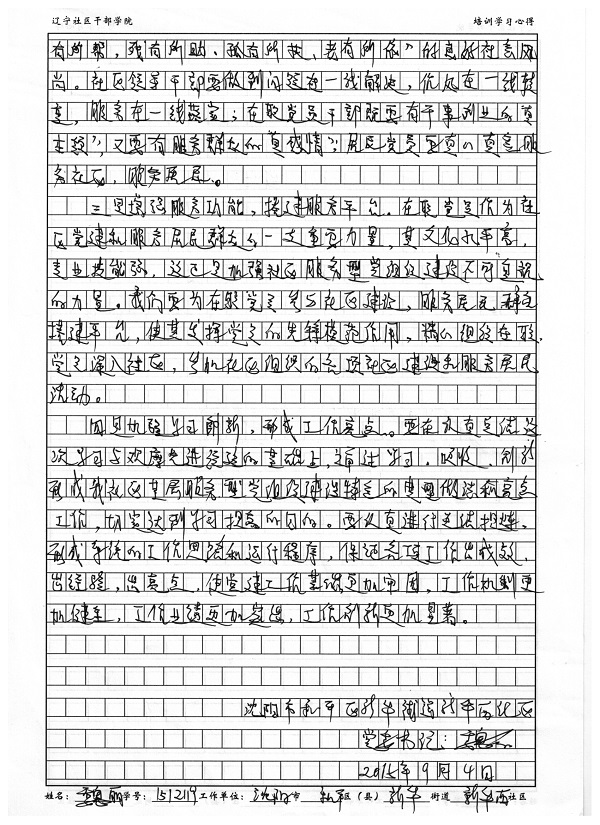 辽宁社区干部学院 培训学习心得
有所帮，残有所助、孤有所扶、老有所依”的良好社会风
尚。社区领导干部要做到问题在一线解决，优秀在一线
，服务在一线；在职党员干部既要有干事创业的真
本领”，又要有服务群众的真感情”；居民党员要真心真意服
务社区，服务居民。
三是增强服务功能，搭建服务平台。在职党员作为社
区党建和服务居民群众的一支重要力量，其文化水平高，
专业技能强，这也是加强社区服务型党组织建设不可忽视
的力量。我们要为在职党员参与社区建设，服务居民群众
搭建平台，使其发挥党员的先锋模范作用，精心组织在职
党员深入社区，参加社区组织的各项社区建设和服务居民
活动。
四是加强学习创新，形成工作亮点。要在认真总结这
次学习与观摩先进经验的基础上，通过学习、吸收、创新
形成我社区基层服务型党组织建设特色的典型做法和亮点
工作，切实达到学习提高的目的。要认真进行总结提炼，
形成系统的工作思路和运行程序，保证各项工作出成效，
出经验，出亮点，使党建工作基础更加牢固，工作机制更
加健全，工作业绩更加突出，工作创新更加显著。
沈阳市和平区新华街道新华社区
党委书记：
2015年9月4日
姓名： 丽 学号：151219 工作单位：沈阳市 和平区（县） 新华 街道 新华社区